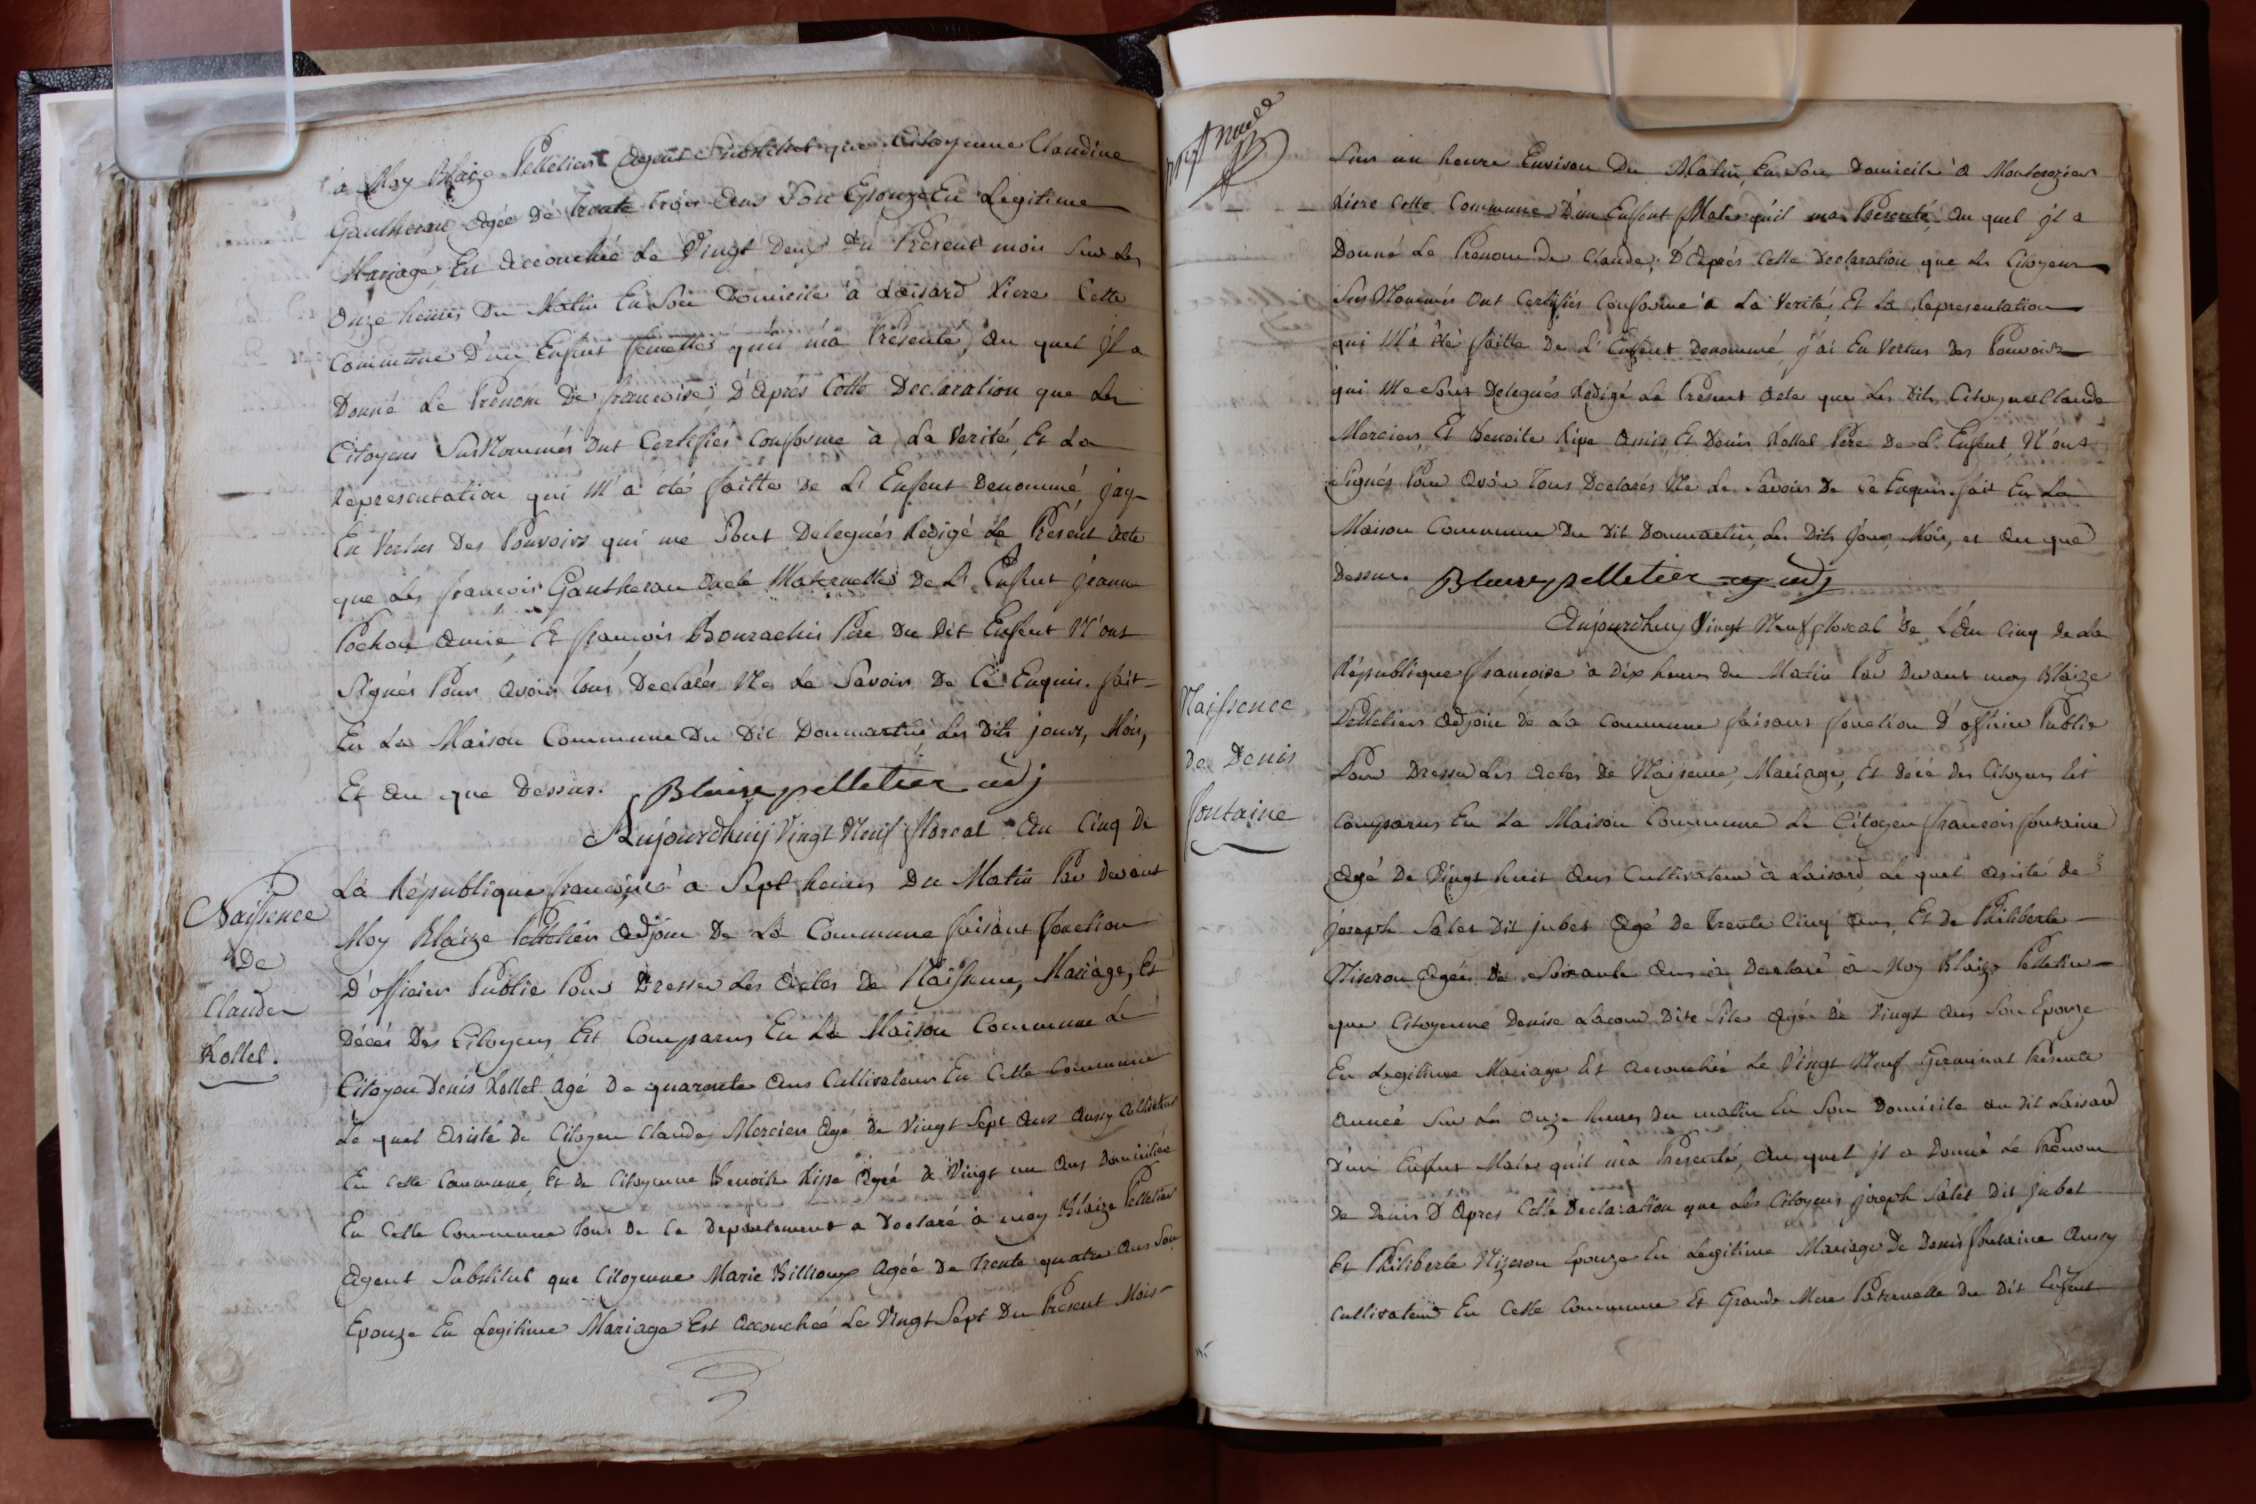 a Moy Blaize Pelletier Agent Substitut que Citoyenne Claudine
Gautheron Agée De Trente trois Ans Son Epouze En Legitime
Mariage, Est Accouchée Le Vingt Deux du Present mois Sur Les
Onze heures Du Matin En Son Domicile à Loisard Riere Cette
Commune D'un Enfent femelle qu'il m'a Présenté, Au quel jl a
Donné Le Prénom De francoise, D'Après Cette Declaration que Les
Citoyens SusNommés Ont Certifiés Conforme à La Verité, Et La
Representation qui M'a été faitte de L'Enfent Denommé j'ay
En Vertus Des Pouvoirs qui me Sont Delegués Redigé Le Présent Acte
que Les francois Gautheron Oncle Maternelle De L'Enfent jeanne
Pochon Amie, Et francois Bourachin Pere Du Dit Enfent N'ont
Signés Pour Avoir Tous Declarés Ne Le Savoir De Ce Enquis. fait
En La Maison Commune Du Dit Donmartin, Les Dits jours, Mois,
Et An que Dessus. Blaise pelletier adj
Naissence
De
Claude
Rollet.
Aujourdhuij Vingt Neuf floreal An Cinq De
La République francoise à Sept heures Du Matin Par Devant
Moy Blaize Pelletier Adjoin De La Commune faisant fonction
D'officier Public Pour Dresser Les Actes De Naissence, Mariage, Et
Décés Des Citoyens Est Comparus En La Maison Commune Le
Citoyen Denis Rollet Agé De quarente Ans Cultivateur En Cette Commune
Le quel Assisté De Citoyen Claude Mercier Agé De Vingt Sept Ans Aussy Cultivateur
En Cette Commune, Et De Citoyenne Benoite Risse Agée De Vingt un Ans Domiciliée
En Cette Commune Tous De Ce Departement a Declaré à moy Blaize Pelletier
Agent Substitut que Citoyenne Marie Billioux Agée De Trente quatre Ans Son
Epouze En Legitime Mariage Est Accouchée Le Vingt Sept Du Présent Mois
Sur un heure Environ Du Matin, En Son Domicile à
Riere Cette Commune D'un Enfent Male qu'il m'a Présenté, Au quel jl a
Donné Le Prenom De Claude, D'Après Cette Declaration que Les Citoyens
SusNommés Ont Certifiés Conforme à La Verité, Et La Representation
qui M'a été faitte De L'Enfent Denommé j'ai En Vertus Des Pouvoirs
qui Me Sont Delegués Redigé Le Present Acte que Les Dits Citoyens Claude
Mercier, Et Benoite Ripe Amis Et Denis Rollet Pere De L'Enfent N'ont
Signés Pour Avoir Tous Declarés Ne Le Savoir De Ce Enquis. fait En La
Maison Commune Du Dit Donmartin, Les Dits jour, Mois, et An que
Dessus. Blaise pelletier adj
Naissence
de Denis
fontaine
Aujourdhuij Vingt Neuf floreal De L'An Cinq de La
République francoise à Dix heures du Matin Par Devant moy Blaize
Pelletier Adjoin De La Commune faisant fonction D'officier Public
Pour Dresser Les Actes De Naissence, Mariage, Et décé Des Citoyens Est
Comparus En La Maison Commune Le Citoyen francois fontaine
Agé De Vingt huit Ans Cultivateur à Loisard, Le quel Assisté de
joseph Salet Dit jubet Agé De Trente Cinq Ans, Et De Philiberte
Nizeron Agée De Soixante Ans à Declaré à Moy Blaize Pelletier
que Citoyenne Denise Lacour Dite Agée De Vingt Ans Son Epouze
En Legitime Mariage Est Accouchée Le Vingt Neuf Germinal Présente
Année Sur Les Onze heures Du matin En Son Domicile au dit Loisard
D'un Enfent Male qu'il m'a Presenté, Au quel jl a Donné Le Prénom
De Denis D'Après Cette Declaration que Les Citoyens joseph Salet Dit jubet
Et Philiberte Nizeron Epouze En Legitime Mariage De Denis fontaine Aussy
Cultivateur En Cette Commune Et Grande Mere Paternelle Du Dit Enfent